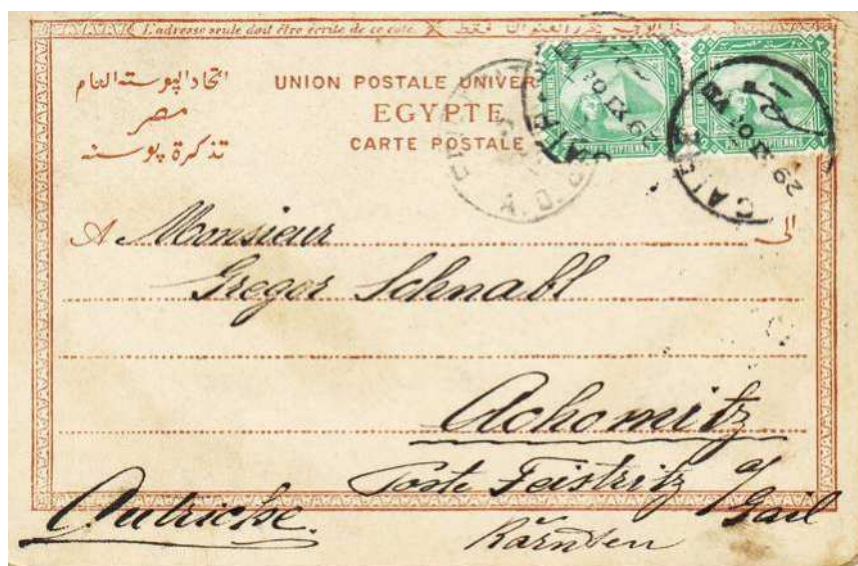 L'adresse seule doit être écrite de ce côté.
اتحاد البوستة العام
مصر
تذكرة بوستة
UNION POSTALE UNIVER
EGYPTE
CARTE POSTALE
2 2
POSTES EGYPTIENNES
2 2
POSTES EGYPTIENNES
CAIRE
A Monsieur الى
Gregor Schnabl
Achomitz
Poste Feistritz a/Gail
Kärnten
Autriche.